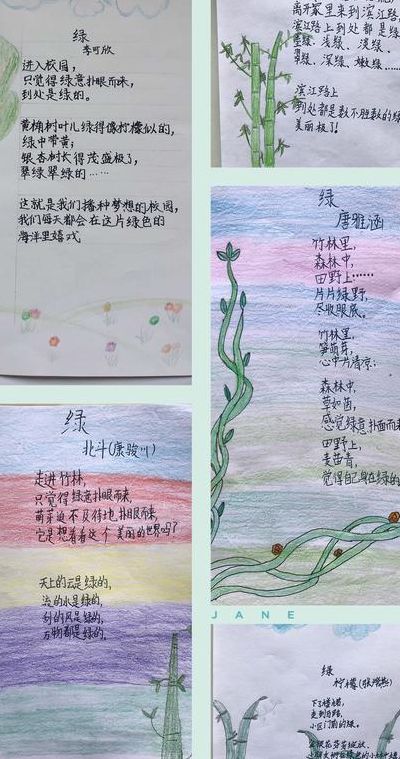 绿
李可欣
进入校园，
只觉得绿意扑眼而来，
到处是绿的。
黄桷树叶儿绿得像柠檬似的，
绿中带黄；
银杏树长得茂盛极了，
翠绿翠绿的……
这就是我们播种梦想的校园，
我们每天都会在这片绿色的
海洋里嬉戏
离开家里来到滨江路，
滨江路上到处都是绿
墨绿、浅绿、浓绿、
翠绿、深绿、嫩绿……
滨江路上
到处都是数不胜数的绿
美丽极了！
绿
唐雅涵
竹林里，
森林中，
田野上……
片片绿野，
尽收眼底。
竹林里，
笋萌芽，
心中片清凉；
森林中，
草如茵，
感觉绿意扑面而来
田野上，
麦苗青，
觉得自己身在绿的
绿
北斗(康骏川)
走进竹林，
只觉得绿意扑眼而来，
萌芽迫不及待地扑眼而来，
它是想看看这个美丽的世界吗？
天上的云是绿的，
流的水是绿的，
刮的风是绿的，
万物都是绿的，
JANE
绿
柠檬
下了楼梯，
走到马路，
小区门前的绿。